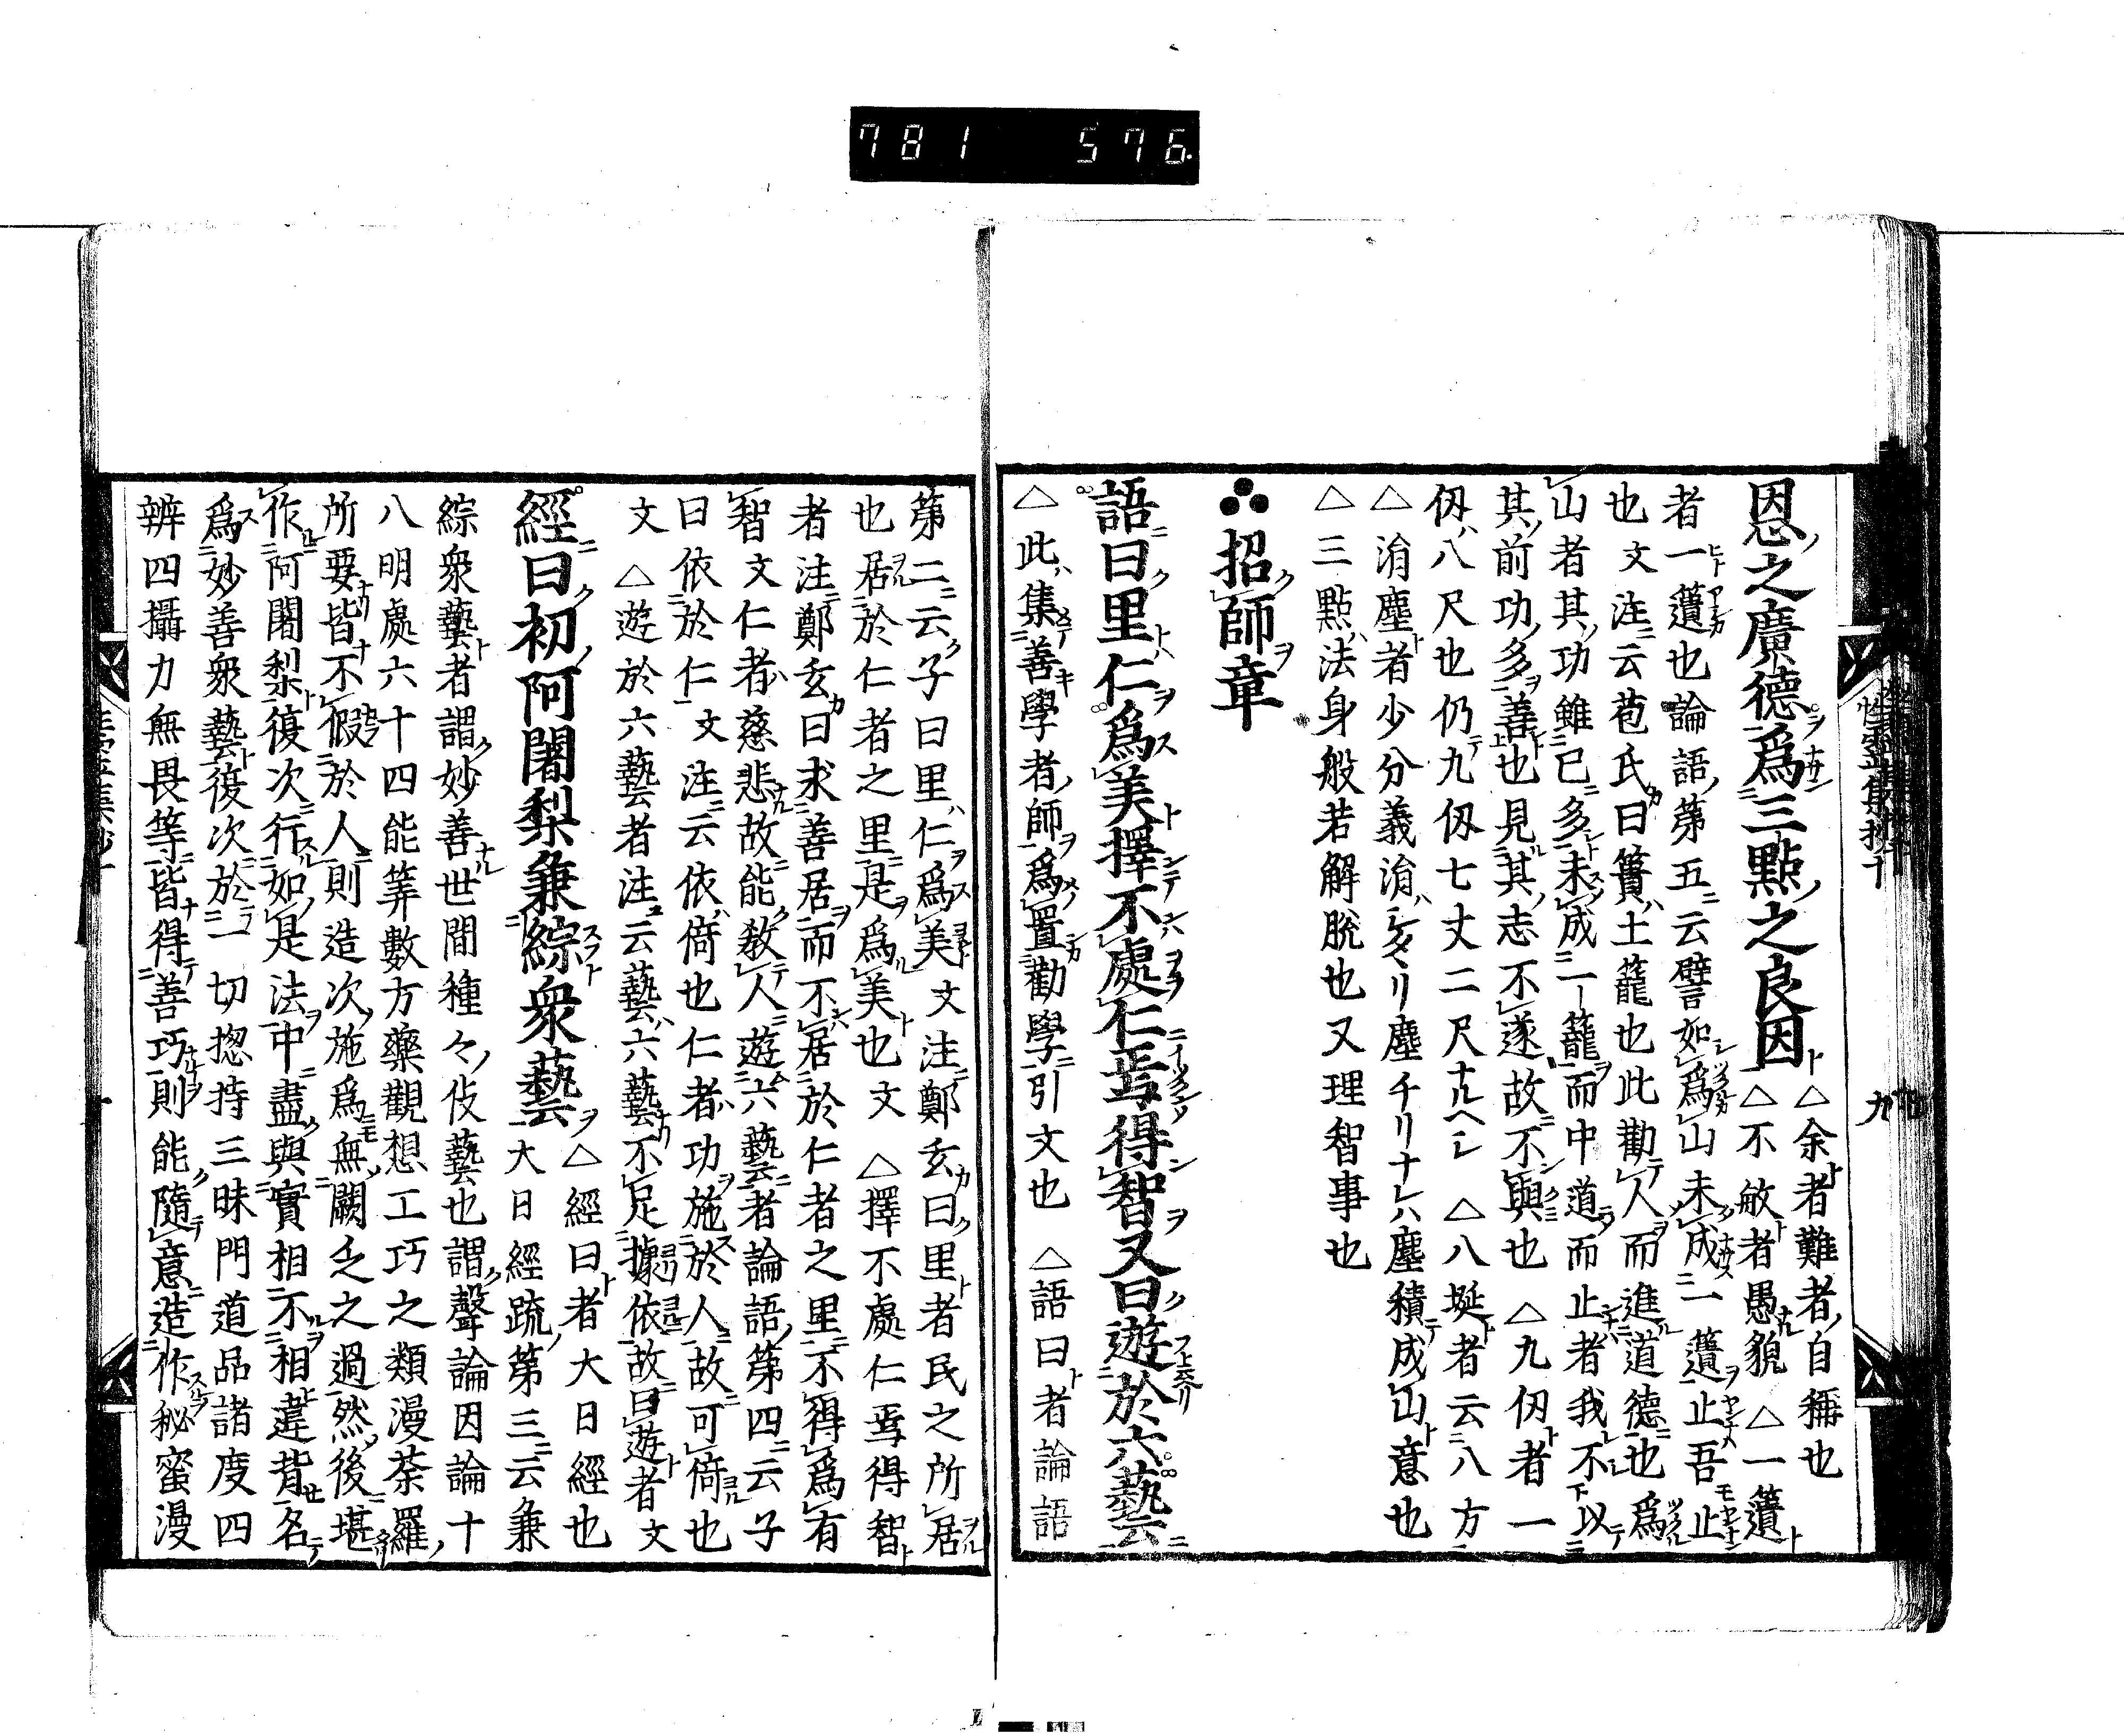 781 576
恩之廣德爲三點之良因△余者難者自稱也
△不敏者愚貌△一簣
者一簣也論語第五云譬如爲山未成一簣止吾止
也文注云苞氏曰簣土籠也此勸人而進道德也爲
山者其功雖已多未成一籠而中道而止者我不以
其前功多善也見其志不遂故不與也△九仭者一
仭八尺也仍九仭七丈二尺ナルヘシ△八埏者云八方
△涓塵者少分義涓シタヽリ塵チリナレハ塵積成山意也
△三點法身般若解脫也又理智事也
招師章
語曰里仁爲美擇不處仁焉得智又曰遊於六藝
△此集善學者師爲置勸學引文也△語曰者論語
第二云子曰里仁爲美文注鄭玄曰里者民之所居
也居於仁者之里是爲美也文△擇不處仁焉得智
者注鄭玄曰求善居而不居於仁者之里不得爲有
智文仁者慈悲故能敎人遊六藝者論語第四云子
曰依於仁文注云依倚也仁者功施於人故可倚也
文△遊於六藝者注云藝六藝不足據依故曰遊者文
經曰初阿闍梨兼綜衆藝△經曰者大日經也
大日經疏第三云兼
綜衆藝者謂妙善世間種々伎藝也謂聲論因論十
八明處六十四能筭數方藥觀想工巧之類漫荼羅
所要皆不假於人則造次施爲無闕乏之過然後堪
作阿闍梨復次行如是法中盡與實相不相違背名
爲妙善衆藝復次於一切揔持三昧門道品諸度四
辨四攝力無畏等皆得善巧則能隨意造作秘蜜漫
性靈集抄十
九